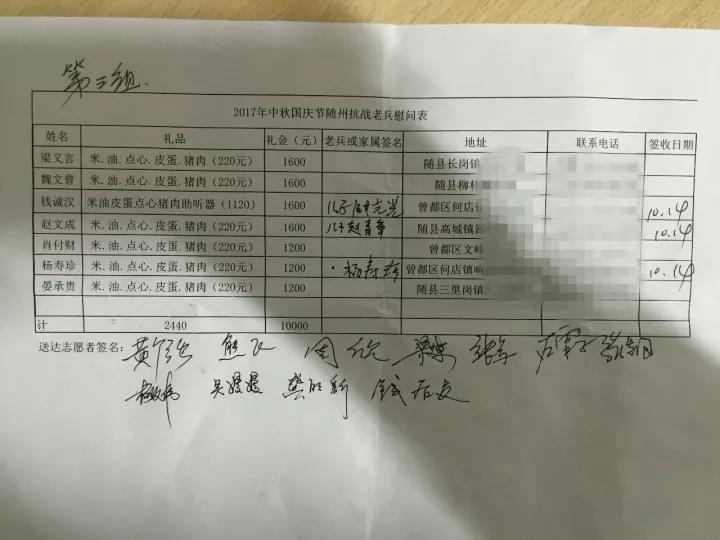 第三组.
2017年中秋国庆节随州抗战老兵慰问表
姓名 礼品 礼金（元） 老兵或家属签名 地址 联系电话 签收日期
梁义言 米.油.点心.皮蛋.猪肉（220元） 1600 随县长岗镇
魏文普 米.油.点心.皮蛋.猪肉（220元） 1600 随县柳林
钱诚汉 米油皮蛋点心猪肉助听器（1120） 1600 儿子 曾都区何店镇 10.14
赵文成 米.油.点心.皮蛋.猪肉（220元） 1600 儿子赵 随县高城镇 10.14
肖付财 米.油.点心.皮蛋.猪肉（220元） 1200 曾都区文峰
杨寿珍 米.油.点心.皮蛋.猪肉（220元） 1200 杨寿珍 曾都区何店镇响 10.14
晏承贵 米.油.点心.皮蛋.猪肉（220元） 1200 随县三里岗镇
计 2440 10000
送达志愿者签名： 熊 周
吴嫚嫚 樊